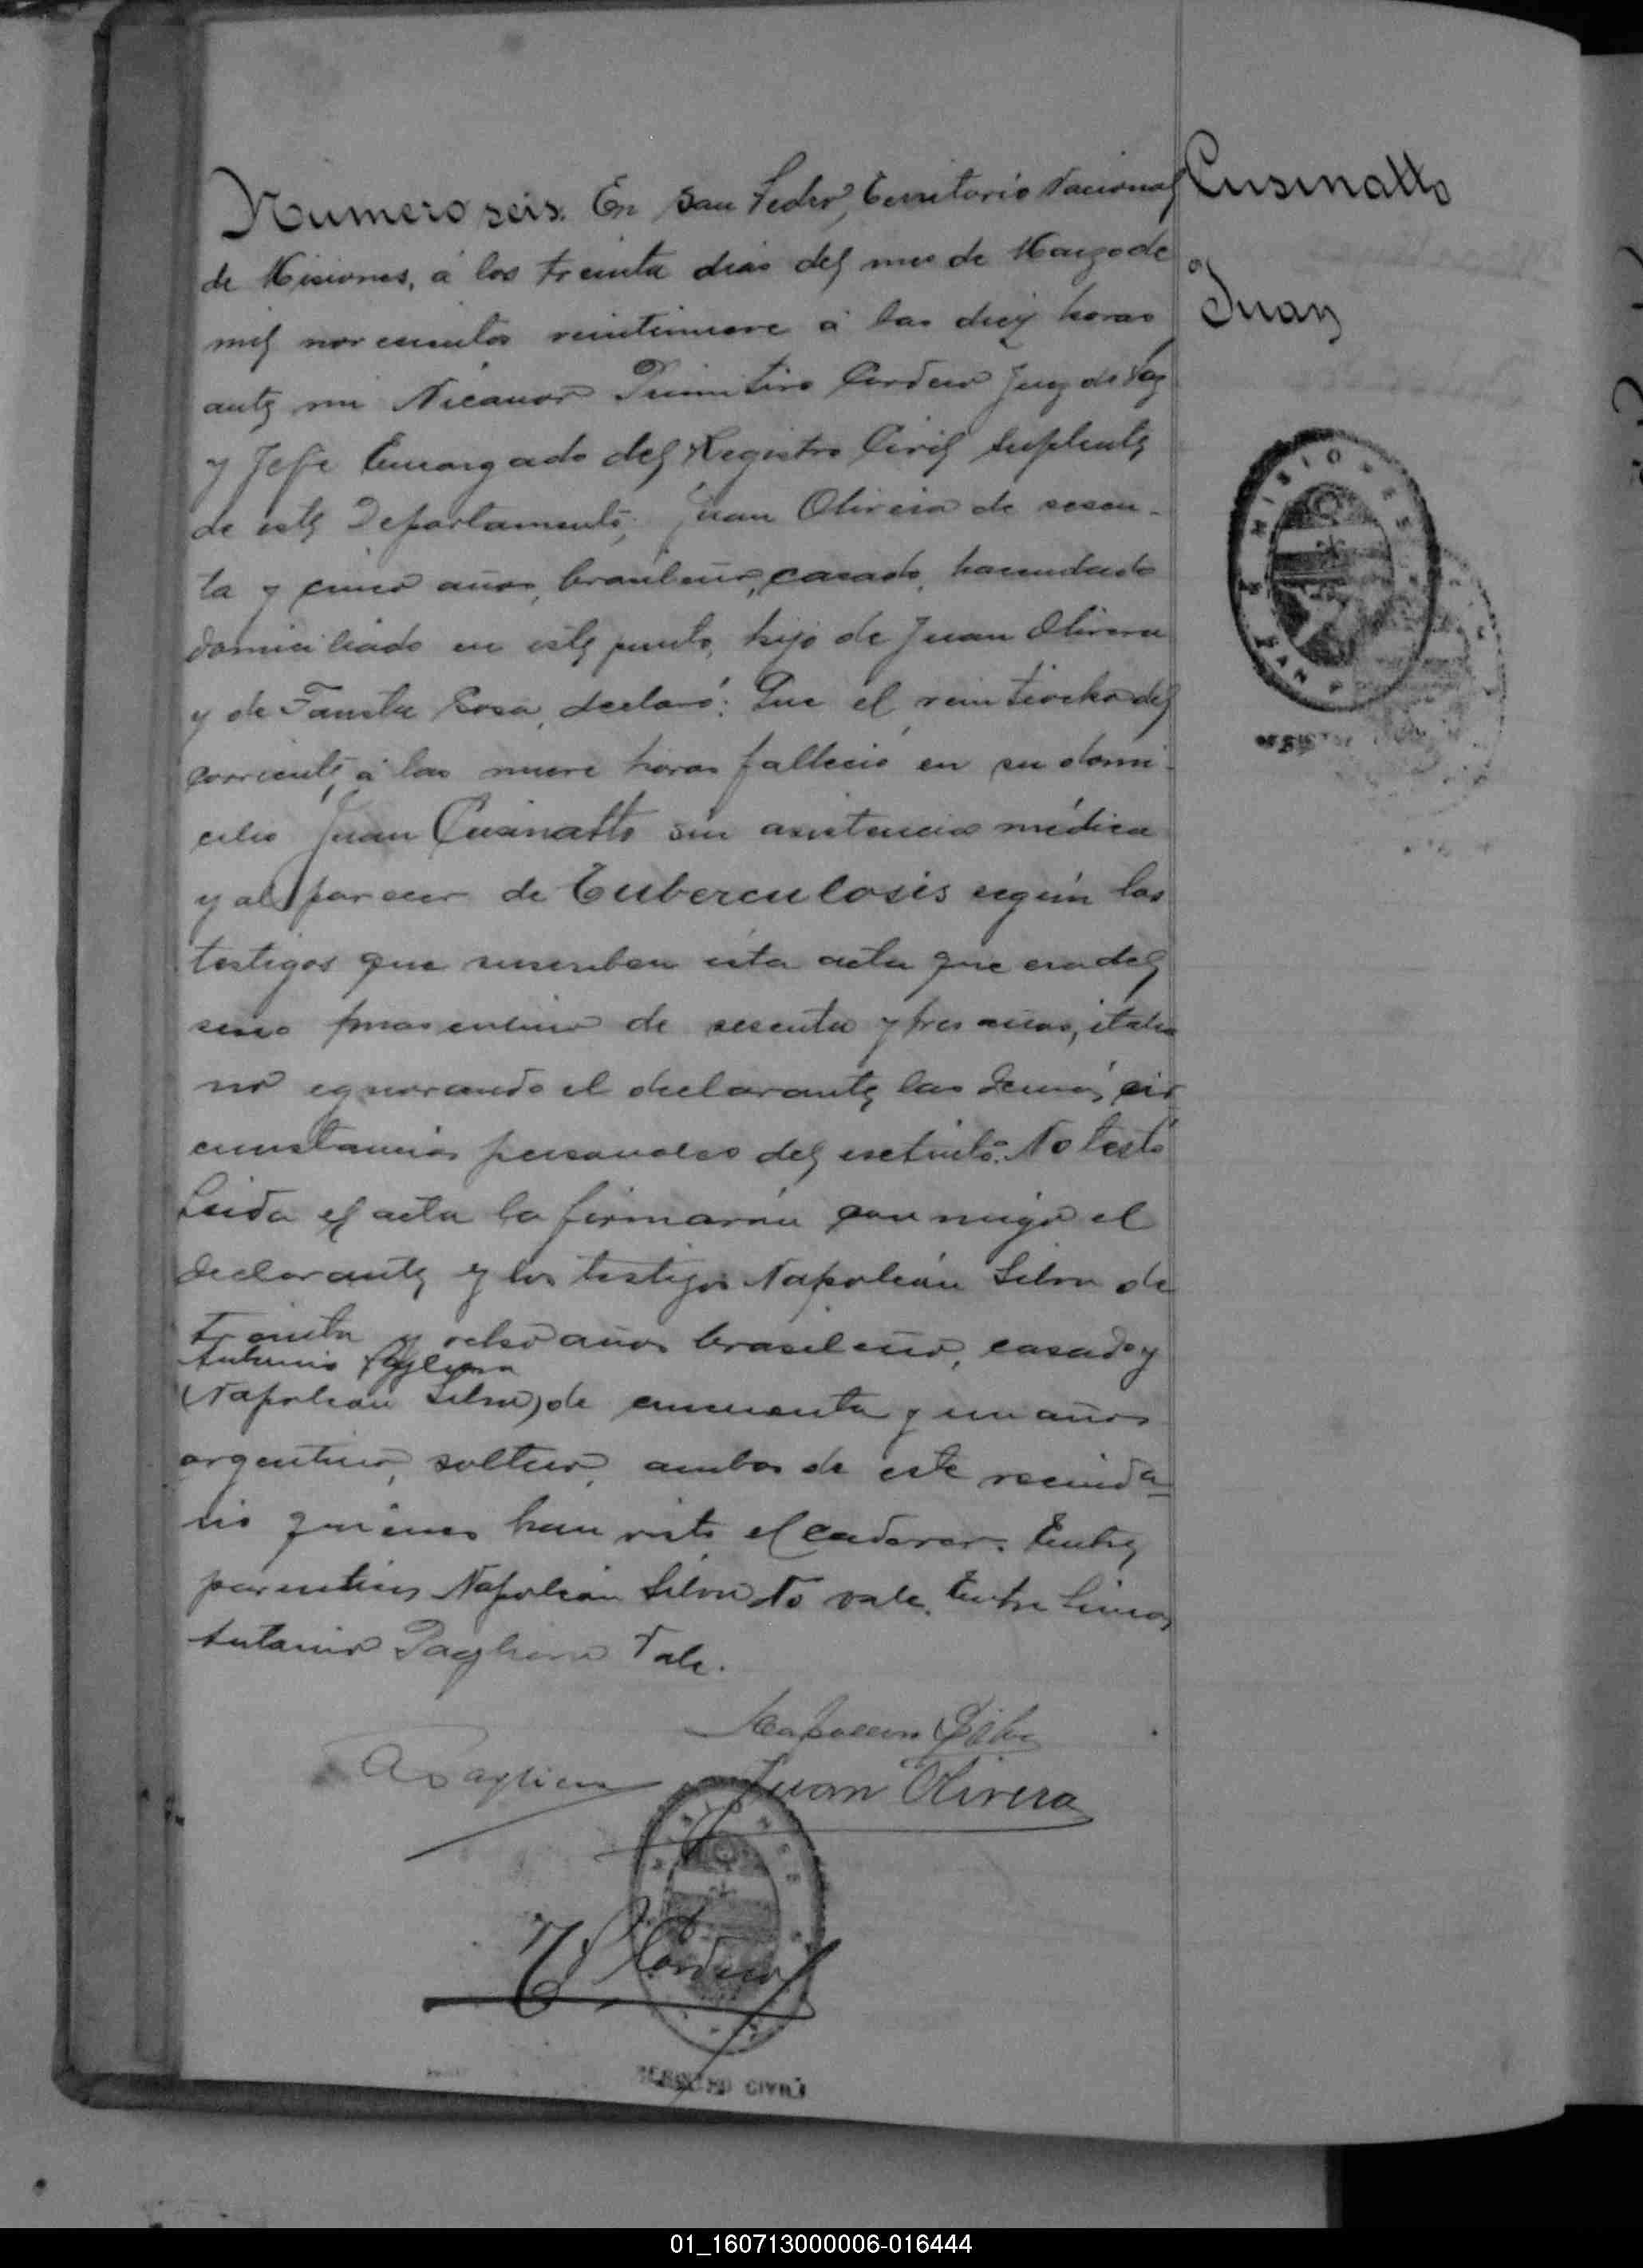 Numero seis. En San Pedro, Territorio Nacional
Cusinatto
de Misiones, á los treinta dias del mes de Marzo de
Juan
mil novecientos veintinueve á las diez horas
ante mi Nicanor Primitivo Cordero Juez de Paz
y Jefe Encargado del Registro Civil Suplente
de este Departamento, Juan Olivera de sesen-
ta y cinco años, brasileño, casado, hacendado
domiciliado en este punto, hijo de Juan Olivera
y de Fausta Rosa, declaró: Que el veintiocho del
corriente á las nueve horas falleció en su domi-
cilio Juan Cusinatto sin asistencia médica
y al parecer de Tuberculosis según los
testigos que suscriben esta acta que era del
sexo masculino de sesenta y tres años, italia
no ignorando el declarante las demás cir
cunstancias personales del extinto. No testó
Leida el acta la firmarón conmigo el
declarante y los testigos Napoleón Silva de
treinta y ocho años brasileño, casado y
Antonio Pagliera
(Napoleón Silva) de cincuenta y un años
argentino, soltero, ambos de este vecinda-
rio quienes han visto el cadaver. Entre
parentesis Napoleón Silva No vale. Entre lineas
Antonio Pagliera Vale.
Napoleon Silva
A Pagliera
Juan Olivera
N P Cordero
MISIONES
SAN P
REGISTRO CIVIL
01_160713000006-016444